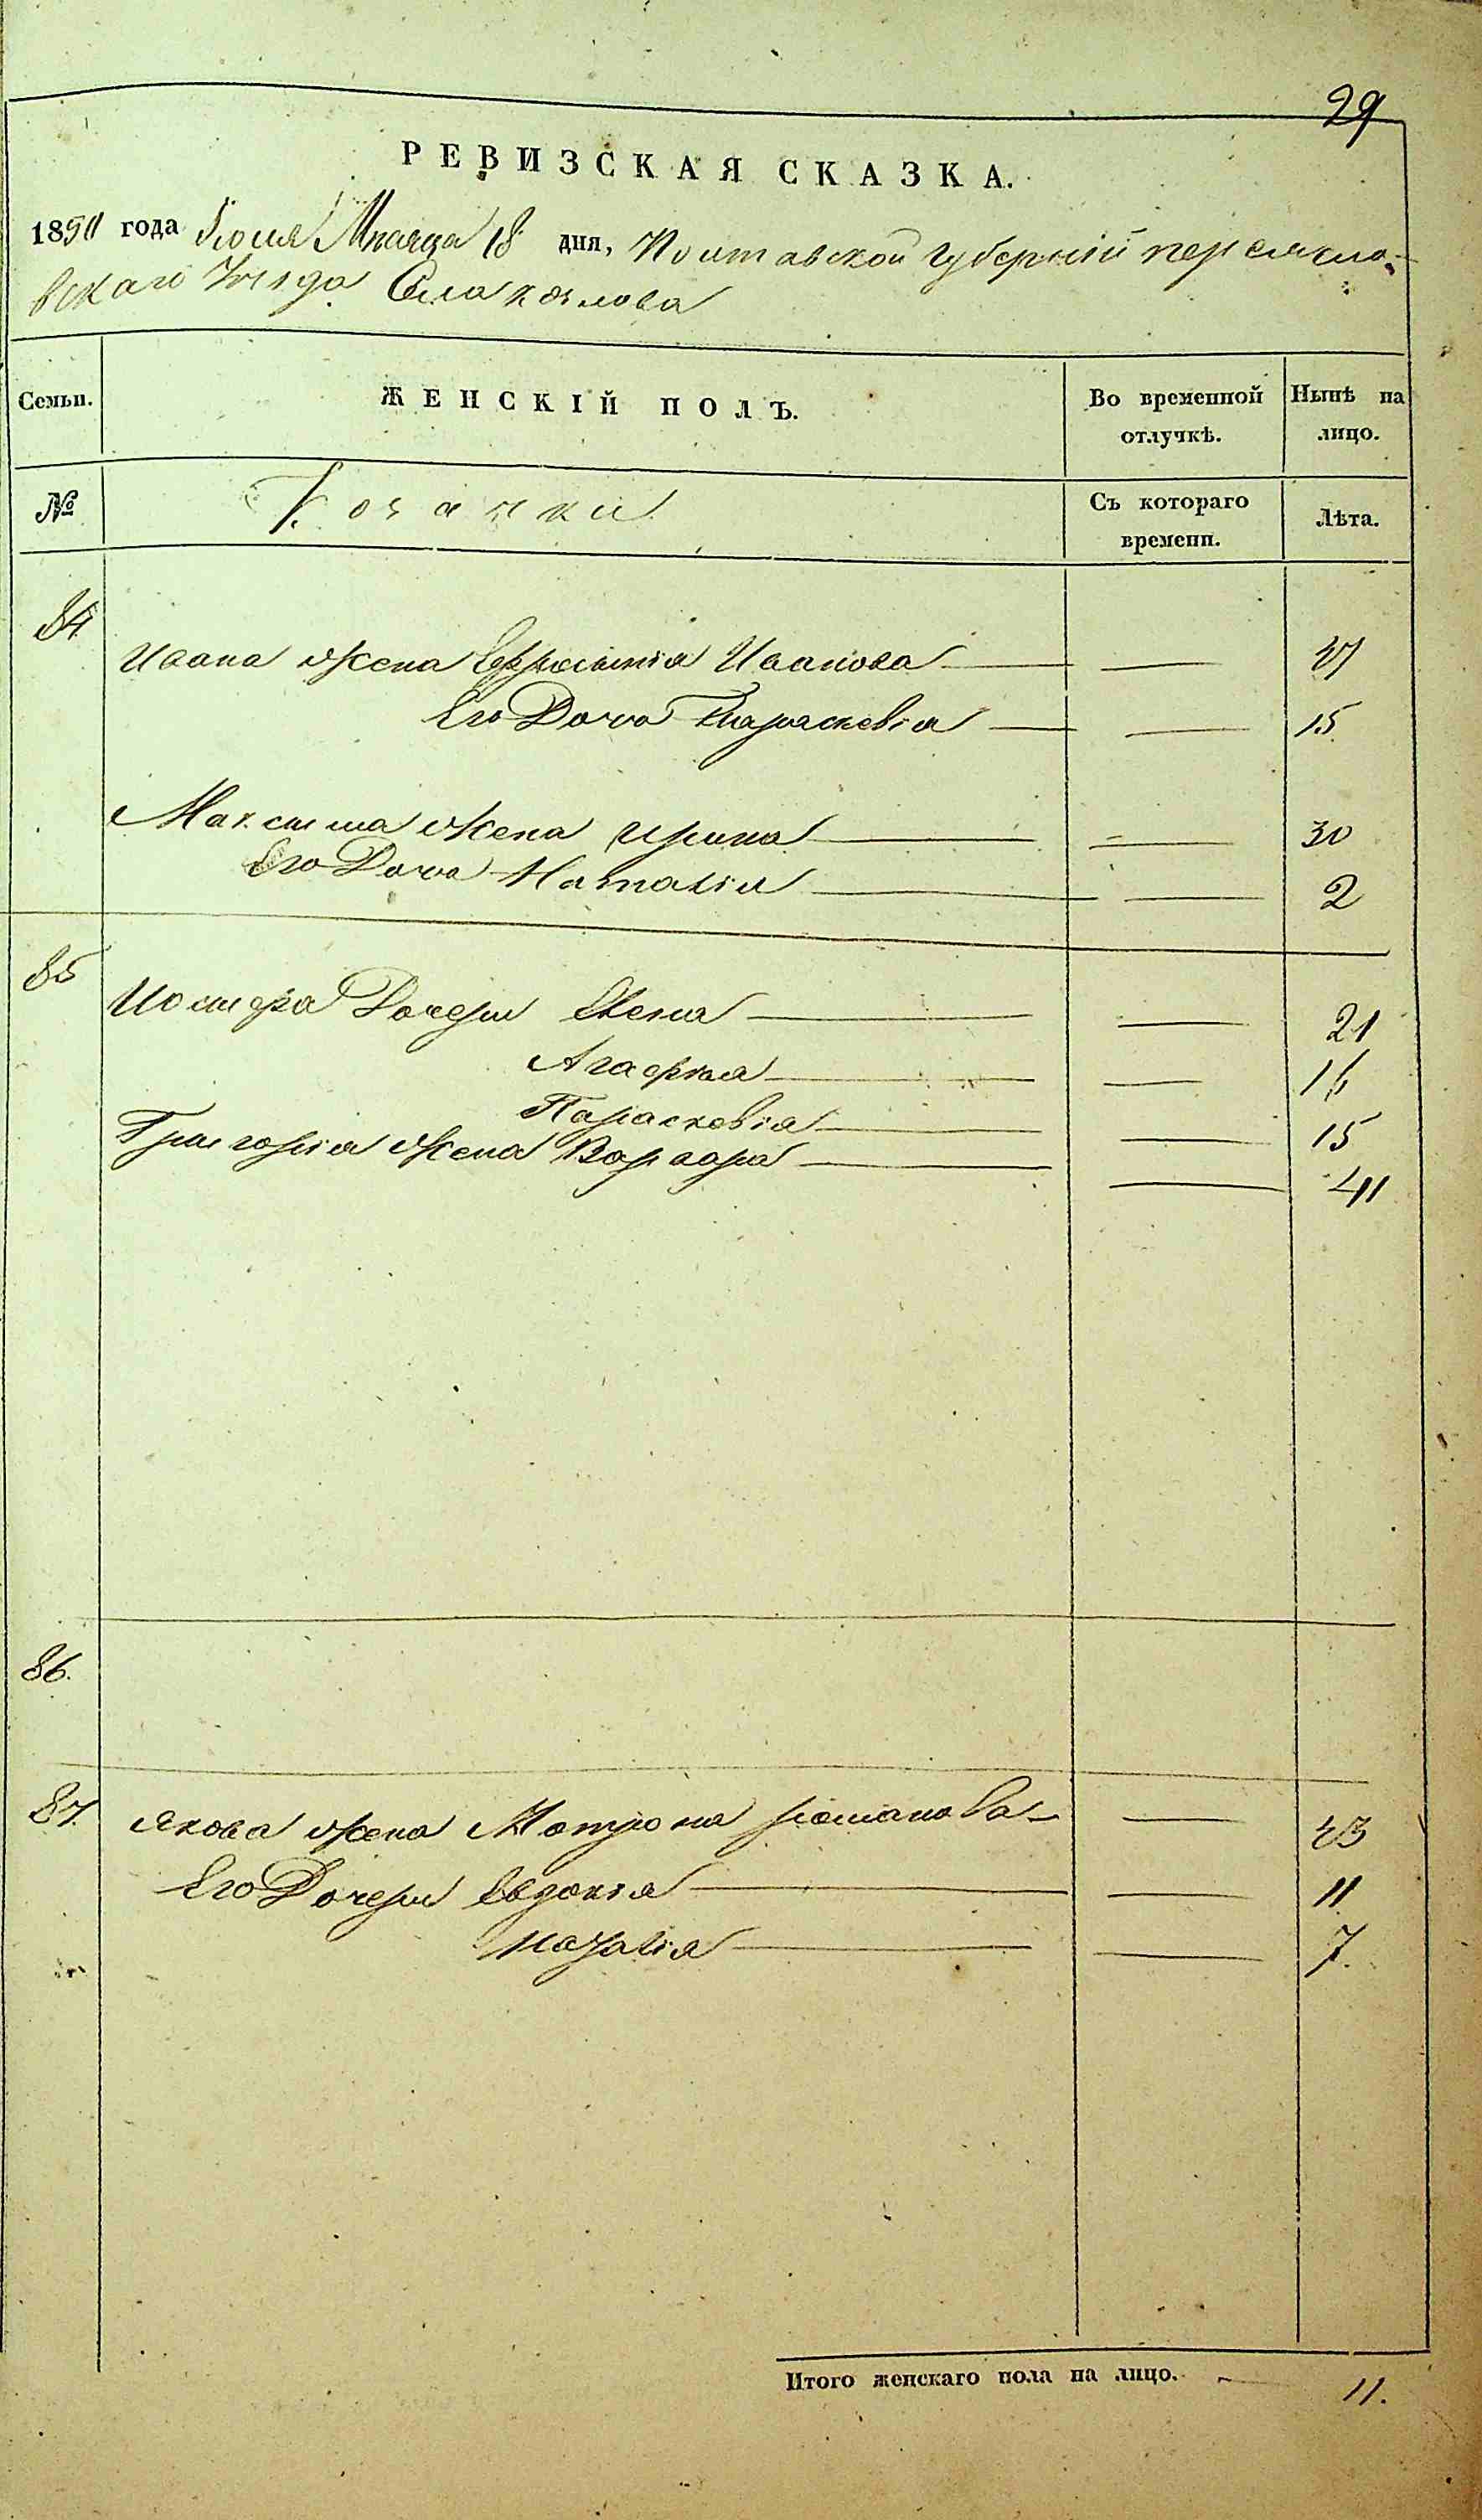 29
РЕВИЗСКАЯ СКАЗКА.
1850 года Июля Мѣсяца 18 дня, Полтавской губерніи переясло-
вскаго Уезда Села козлова
Семьи. ЖЕНСКІЙ ПОЛЪ. Во временной отлучкѣ. Нынѣ на лицо.
№ Козачки Съ котораго времени. Лѣта.
84
Ивана жена Ефросинія Иванова — —
Его Доча Параскевія — — 15
Максима жена Ирина — — 30
Его Доча Наталія — — 2
85
Дочери Елена — — 21
Агафія — — 16
Парасковія — — 15
Григорія жена Варвара — — 41
86.
87. Якова жена Мотрона романова — — 43
Его Дочери Евдокія — — 11
— — 7.
Итого женскаго пола на лицо. — 11.